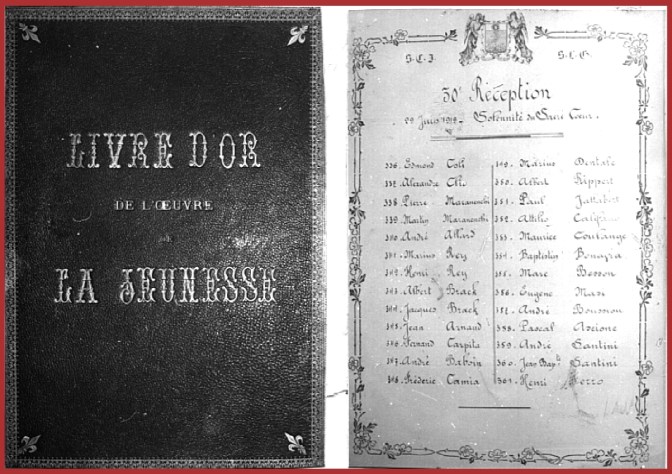 LIVRE D'OR
DE L'ŒUVRE
DE
LA JEUNESSE
S.C.J. S.L.G.
30e Réception
Solennité du Sacré Cœur.
336. Edmond Coli
337. Alexandre
338. Pierre Maranenchi
339. Martin Maranenchi
340. André Allard
341. Marius Rey
342. Henri Rey
343. Albert Brack
344. Jacques Brack
345. Jean Arnaud
346. Fernand Carpita
347. André Baboin
348. Fréderic Camia
349. Marius Dentale
350. Albert Rippert
351. Paul
352. Attilio
353. Maurice Coulange
354. Baptistin
355. Marc Besson
356. Eugène
357. André
358. Pascal Ascione
359. André Santini
360. Jean Bapte Santini
361. Henri